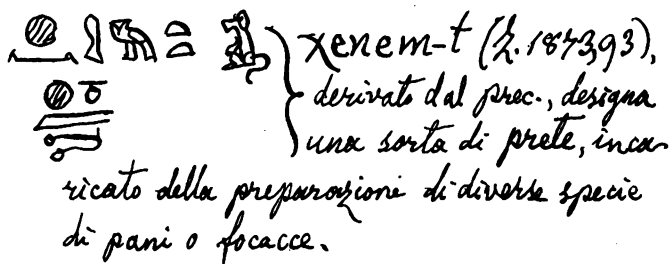 χenem-t (Z. 1873,93),
derivato dal prec., designa
una sorta di prete, inca-
ricato della preparazioni di diverse specie
di pani o focacce.